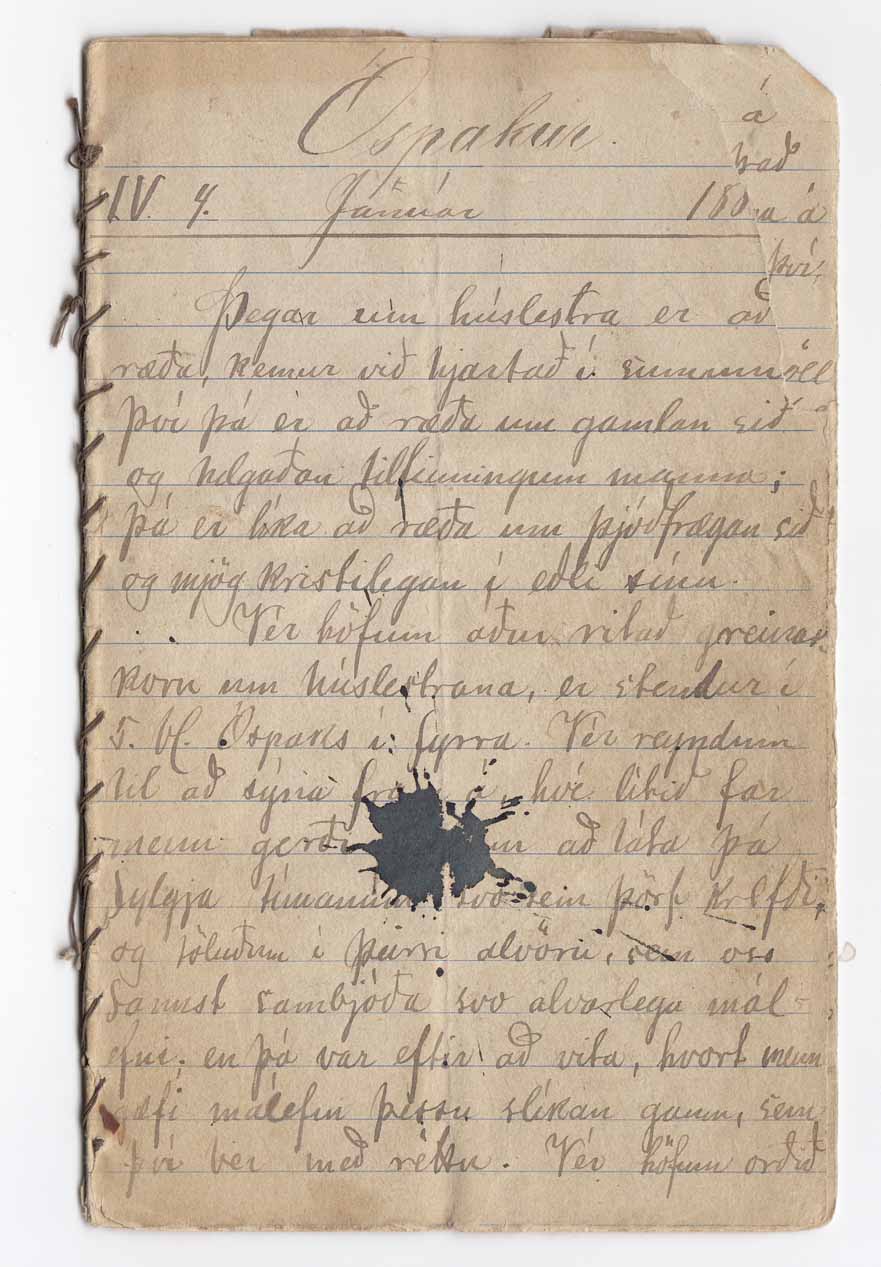 Óspakur.
IV. 4. Janúar 180
á
það
a á
því
Þegar um húslestra er að
ræða, kemur við hjartað í sumum
því þá er að ræða um gamlan sið
og helgaðan tilfinningum manna;
þá er líka að ræða um þjóðfrægan sið
og mjög kristilegan í eðli sínu.
Vér höfum áður ritað greinar-
korn um húslestrana, er stendur í
5. bl. Óspaks í fyrra. Vér reyndum
til að sýna fram á, hve lítið far
menn gerðu um að láta þá
fylgja tímanum svo sem þörf krefði,
og töluðum í þeirri alvöru, sem oss
fannst sambjóða svo alvarlegu mál-
efni; en þá var eftir að vita, hvort menn
gæfi málefni þessu slíkan gaum, sem
því ber með réttu. Vér höfum orðið